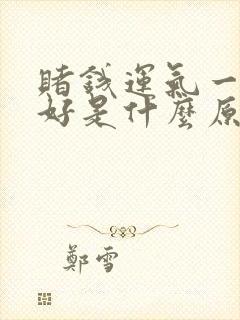 賭錢運氣一
好是什麼原
鄭雪